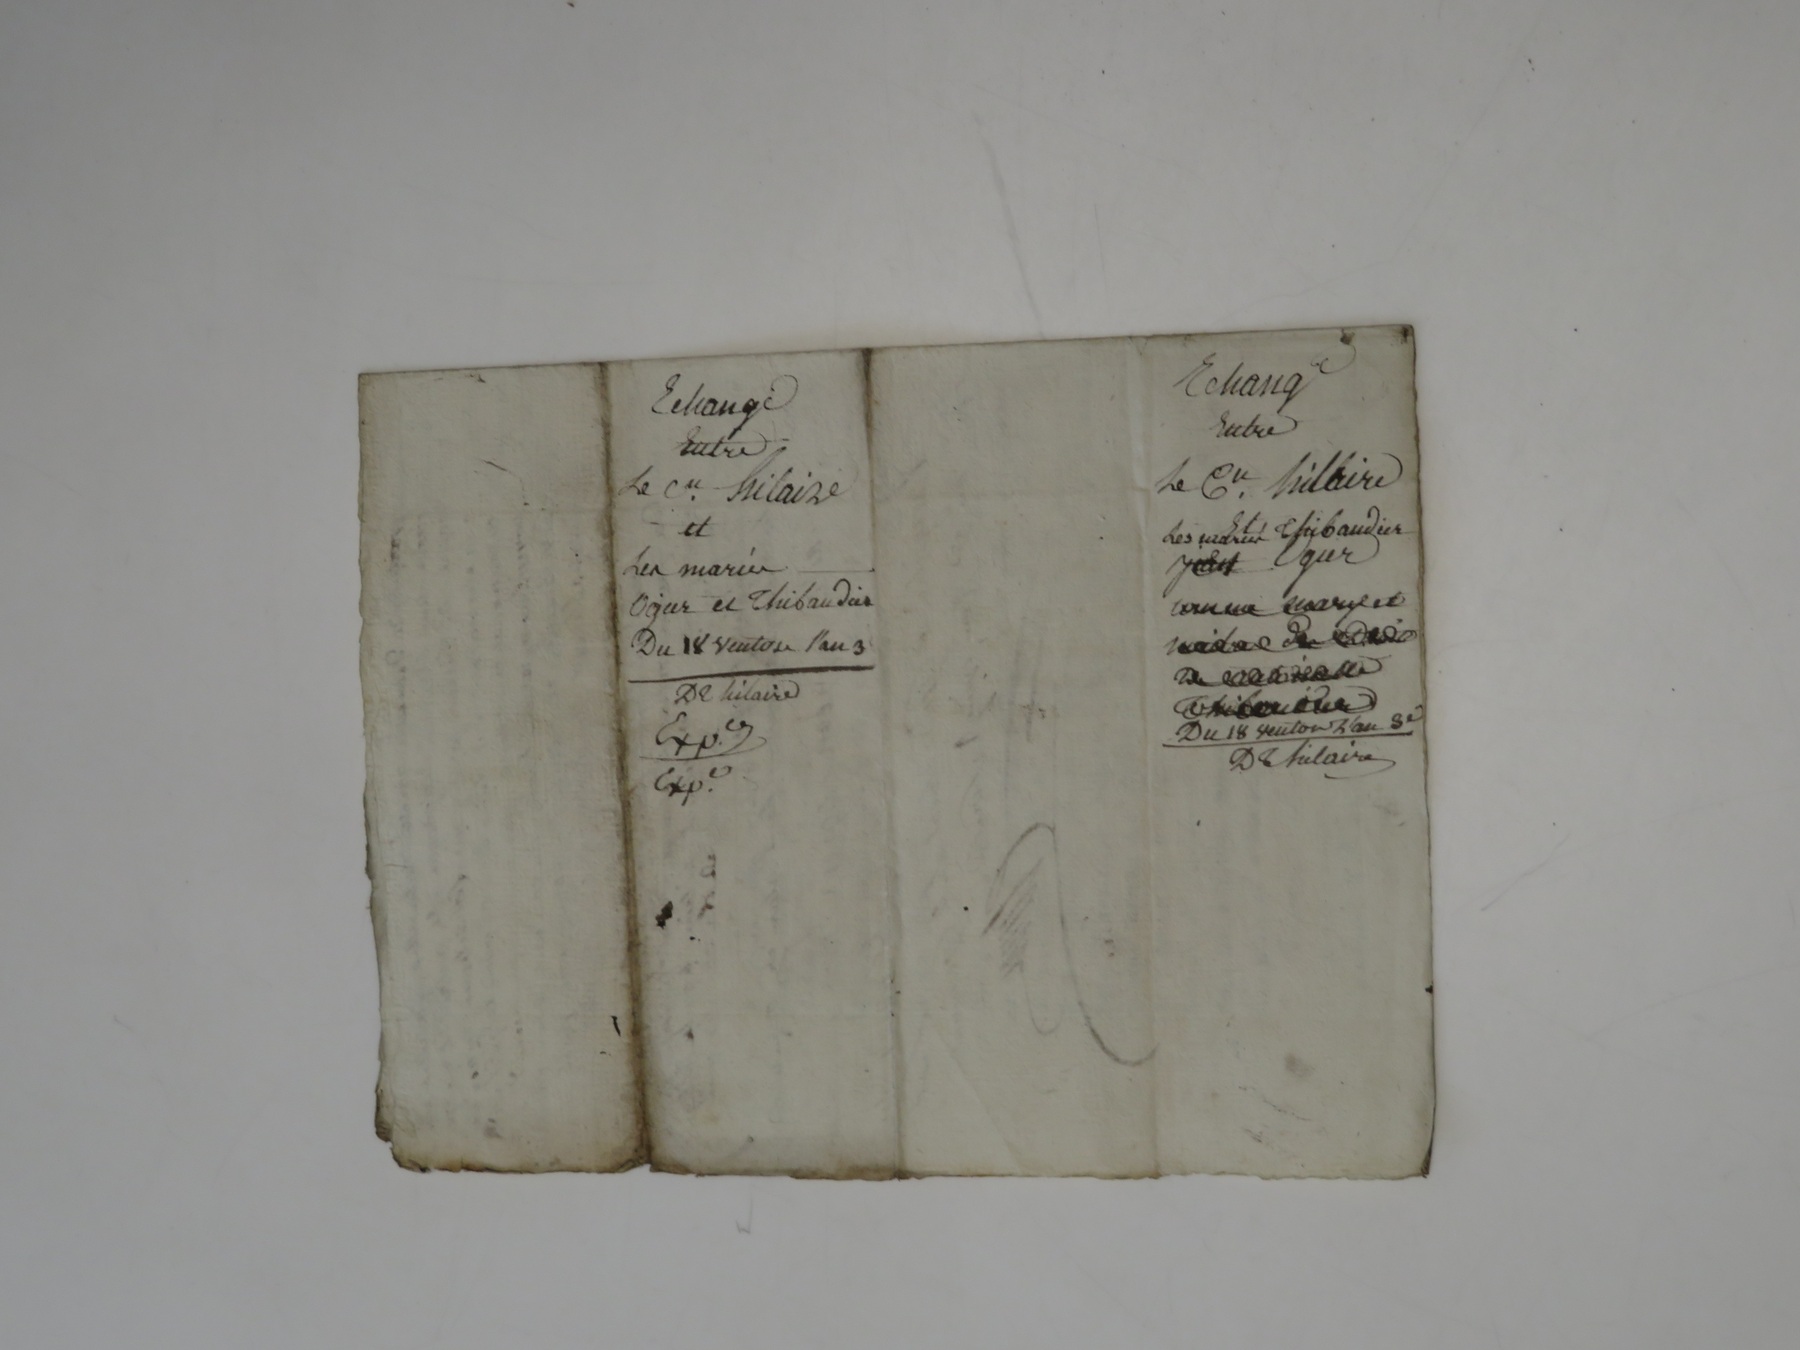 Echange
Entre
Le Cn. hilaire
et
Les mariés
Ogier et Thibaudier
Du 18 Ventose l'an 3
De hilaire
Exp.
Exp.e
Echange
Entre
Le Cn. hillaire
Et
Les mariés Thibaudier
Ogier
comme marye et
Thibaudier
Du 18 Ventose L'an 3e
De hilaire